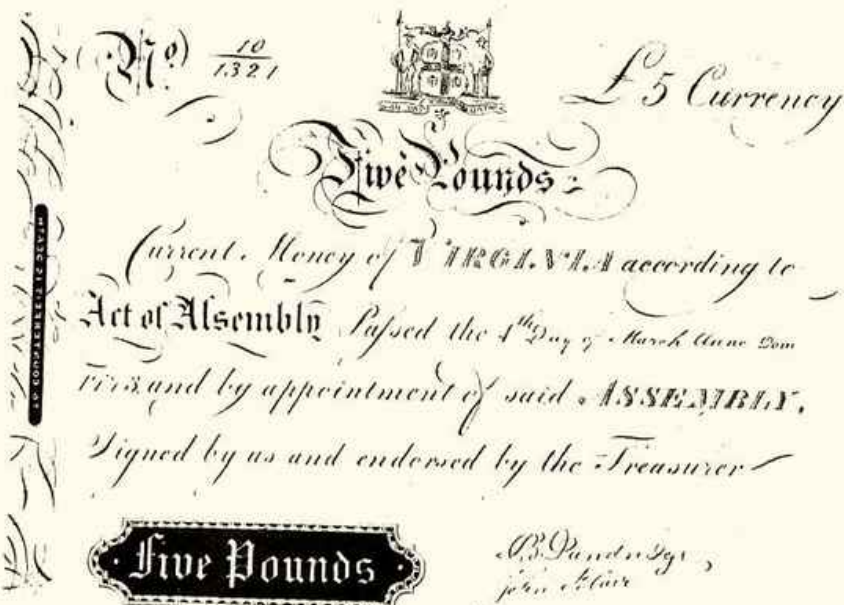 No 10
1321
£5 Currency
Five Pounds
Current Money of VIRGINIA according to
Act of Assembly Passed the 4th Day of March Anno Dom
and by appointment of said ASSEMBLY.
Signed by us and endorsed by the Treasurer
Five Pounds
John Blair